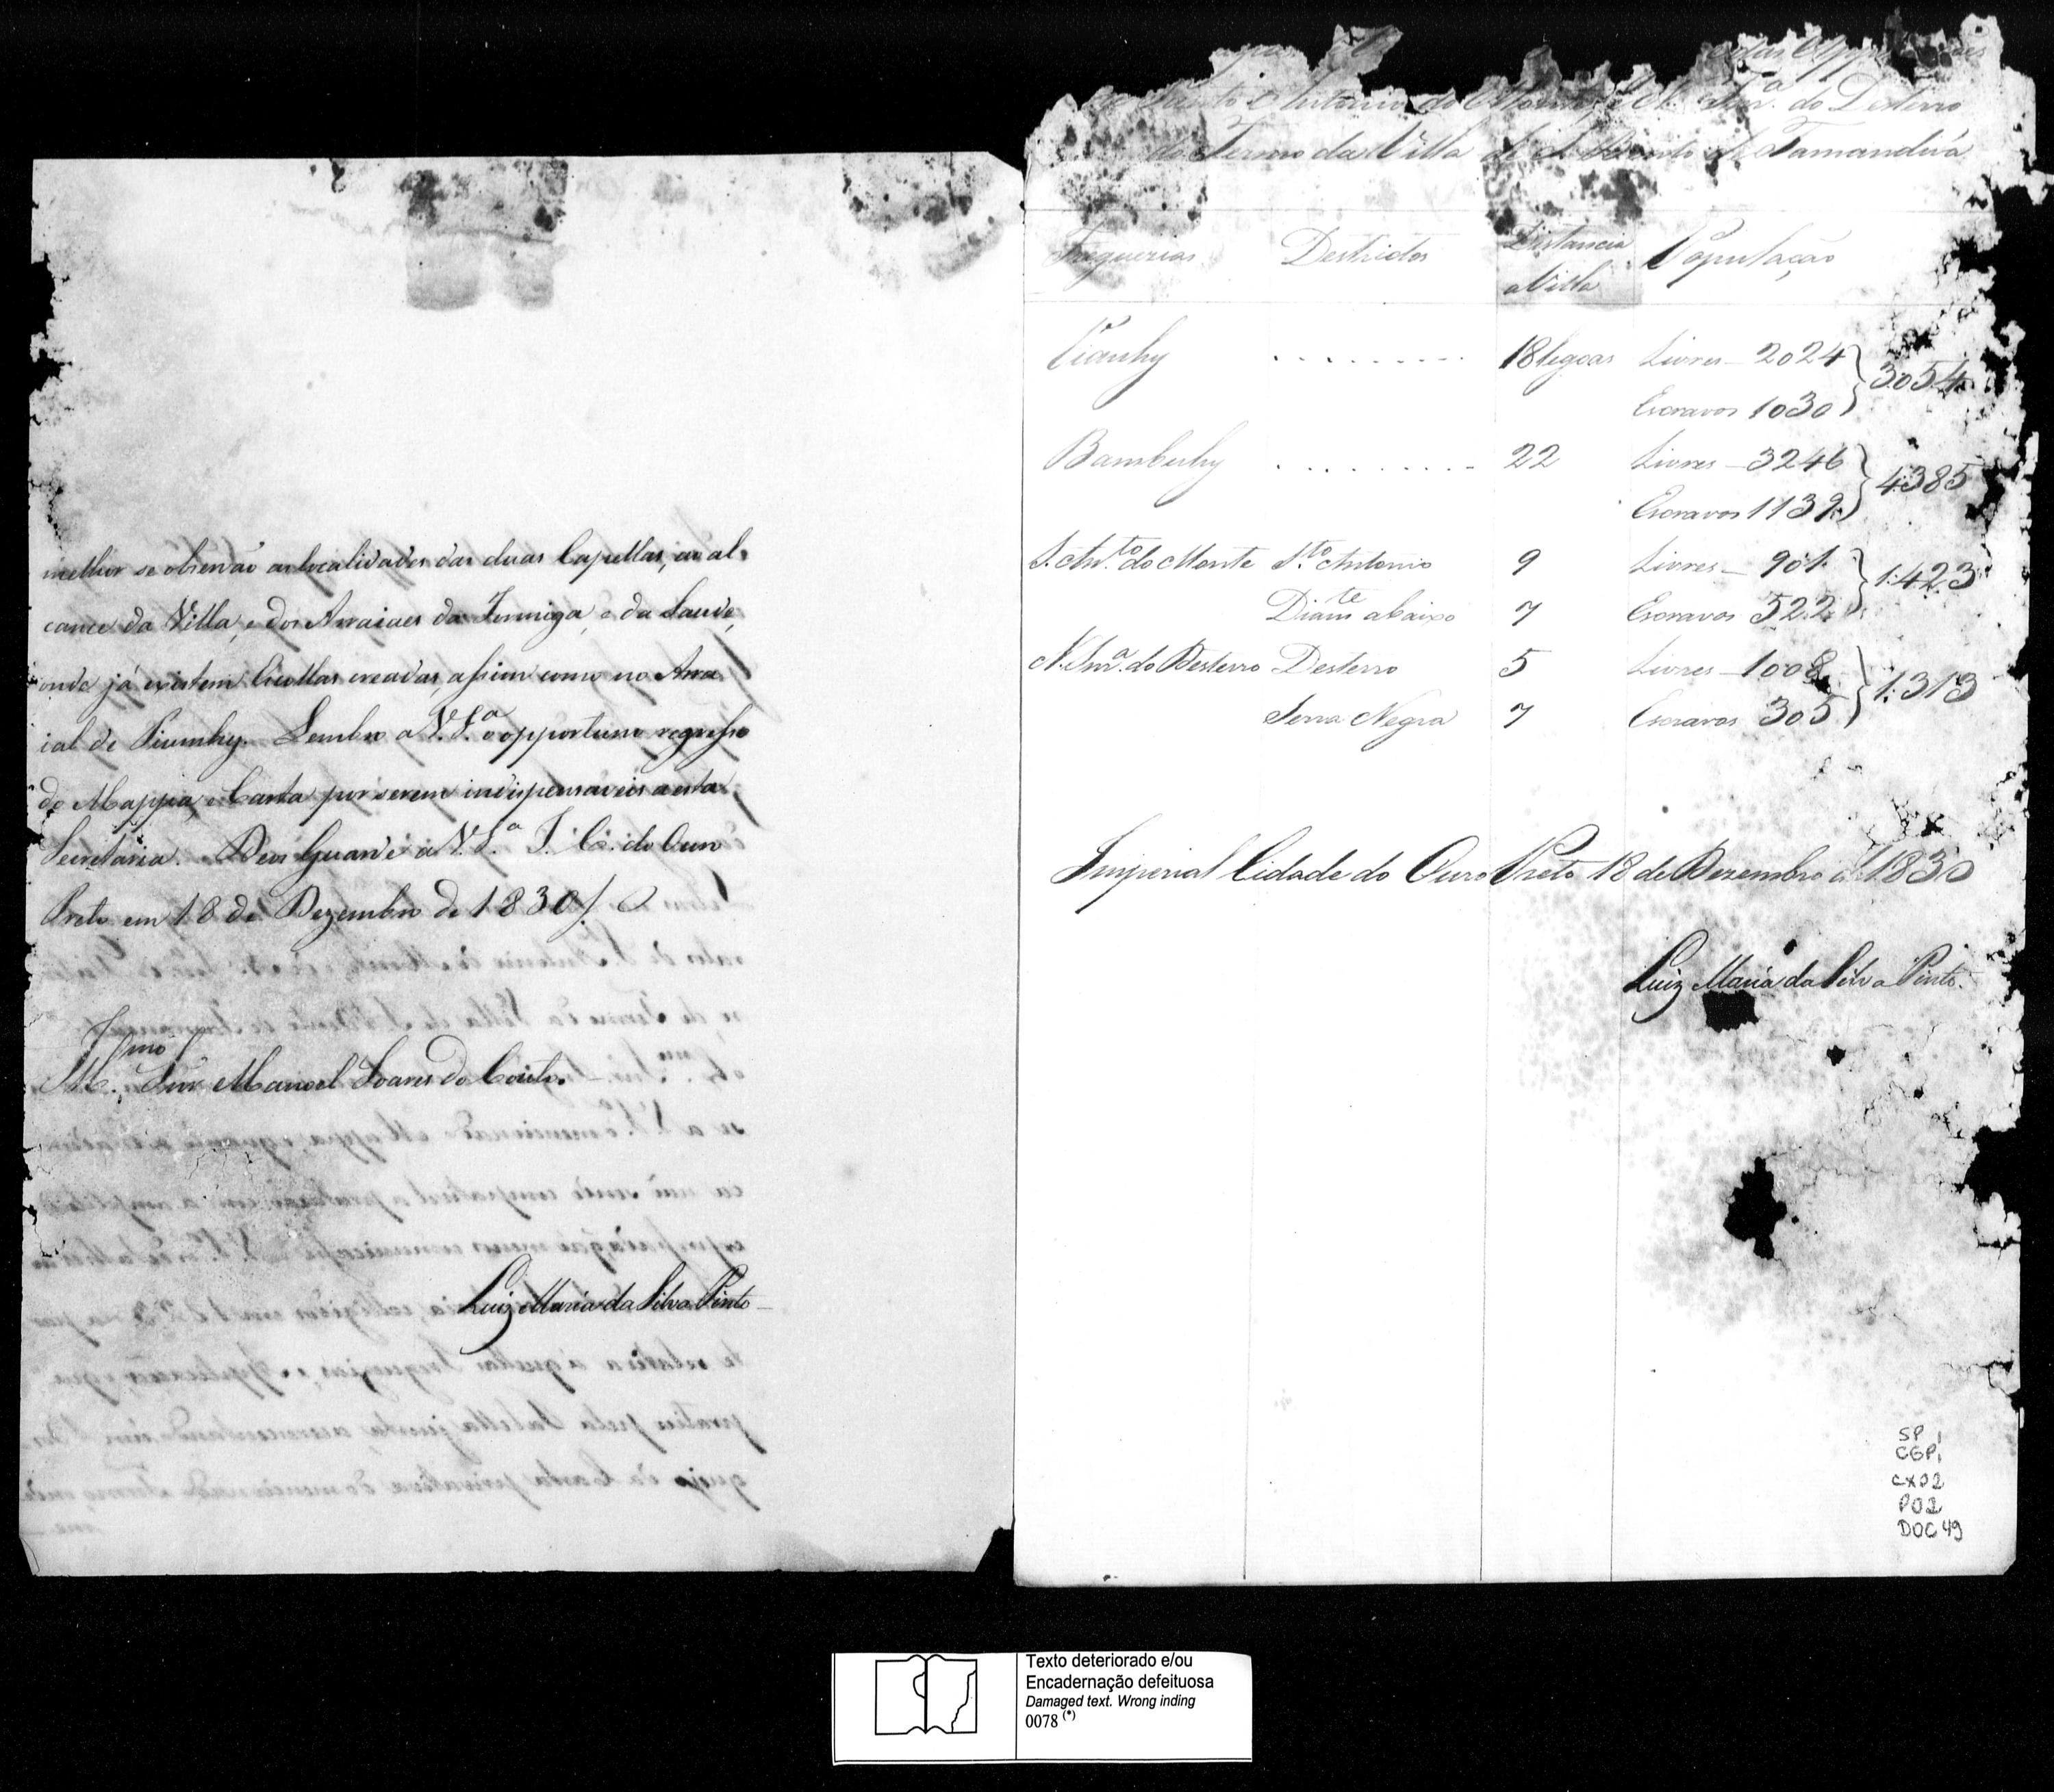 melhor se observão as localidades das duas Capellas, ao al-
cance da Villa, e dos Arraiaes da Formiga, e da Saude,
onde já existem Escollas creadas, assim como no Arra
ial de Piumhy. Lembro a V. S.ª o opportuno regresso
do Mappa, e Carta por serem indispensaveis a esta
Secretaria. Deos Guarde a V. S.ª I. C. do Ouro
Preto em 18 de Dezembro de 1830/.
Snr Manoel Soares do Couto.
Luiz Maria da Silva Pinto
Santo Antonio do Monte, e N. Snr.ª do Desterro
do Termo da Villa de S. Bento de Tamanduá
Freguezias Destrictos Distancia População
a Villa
Piumhy . . . . . . . . . 18 legoas Livres - 2024 } 3054
Escravos 1030
Bambuhy . . . . . . . . . 22 Livres - 3246 } 4385
Escravos 1139
S. Ant.to do Monte S.to Antonio 9 Livres - 901 } 1:423
Diam.te abaixo 7 Escravos 522
N. Snr.ª do Desterro Desterro 5 Livres - 1008 } 1:313
Serra Negra 7 Escravos 305
Imperial Cidade do Ouro Preto 18 de Dezembro de 1830
Luiz Maria da Silva Pinto.
SP 1
CGP1
CX02
P02
DOC 49
Texto deteriorado e/ou
Encadernação defeituosa
Damaged text. Wrong inding
0078 (*)